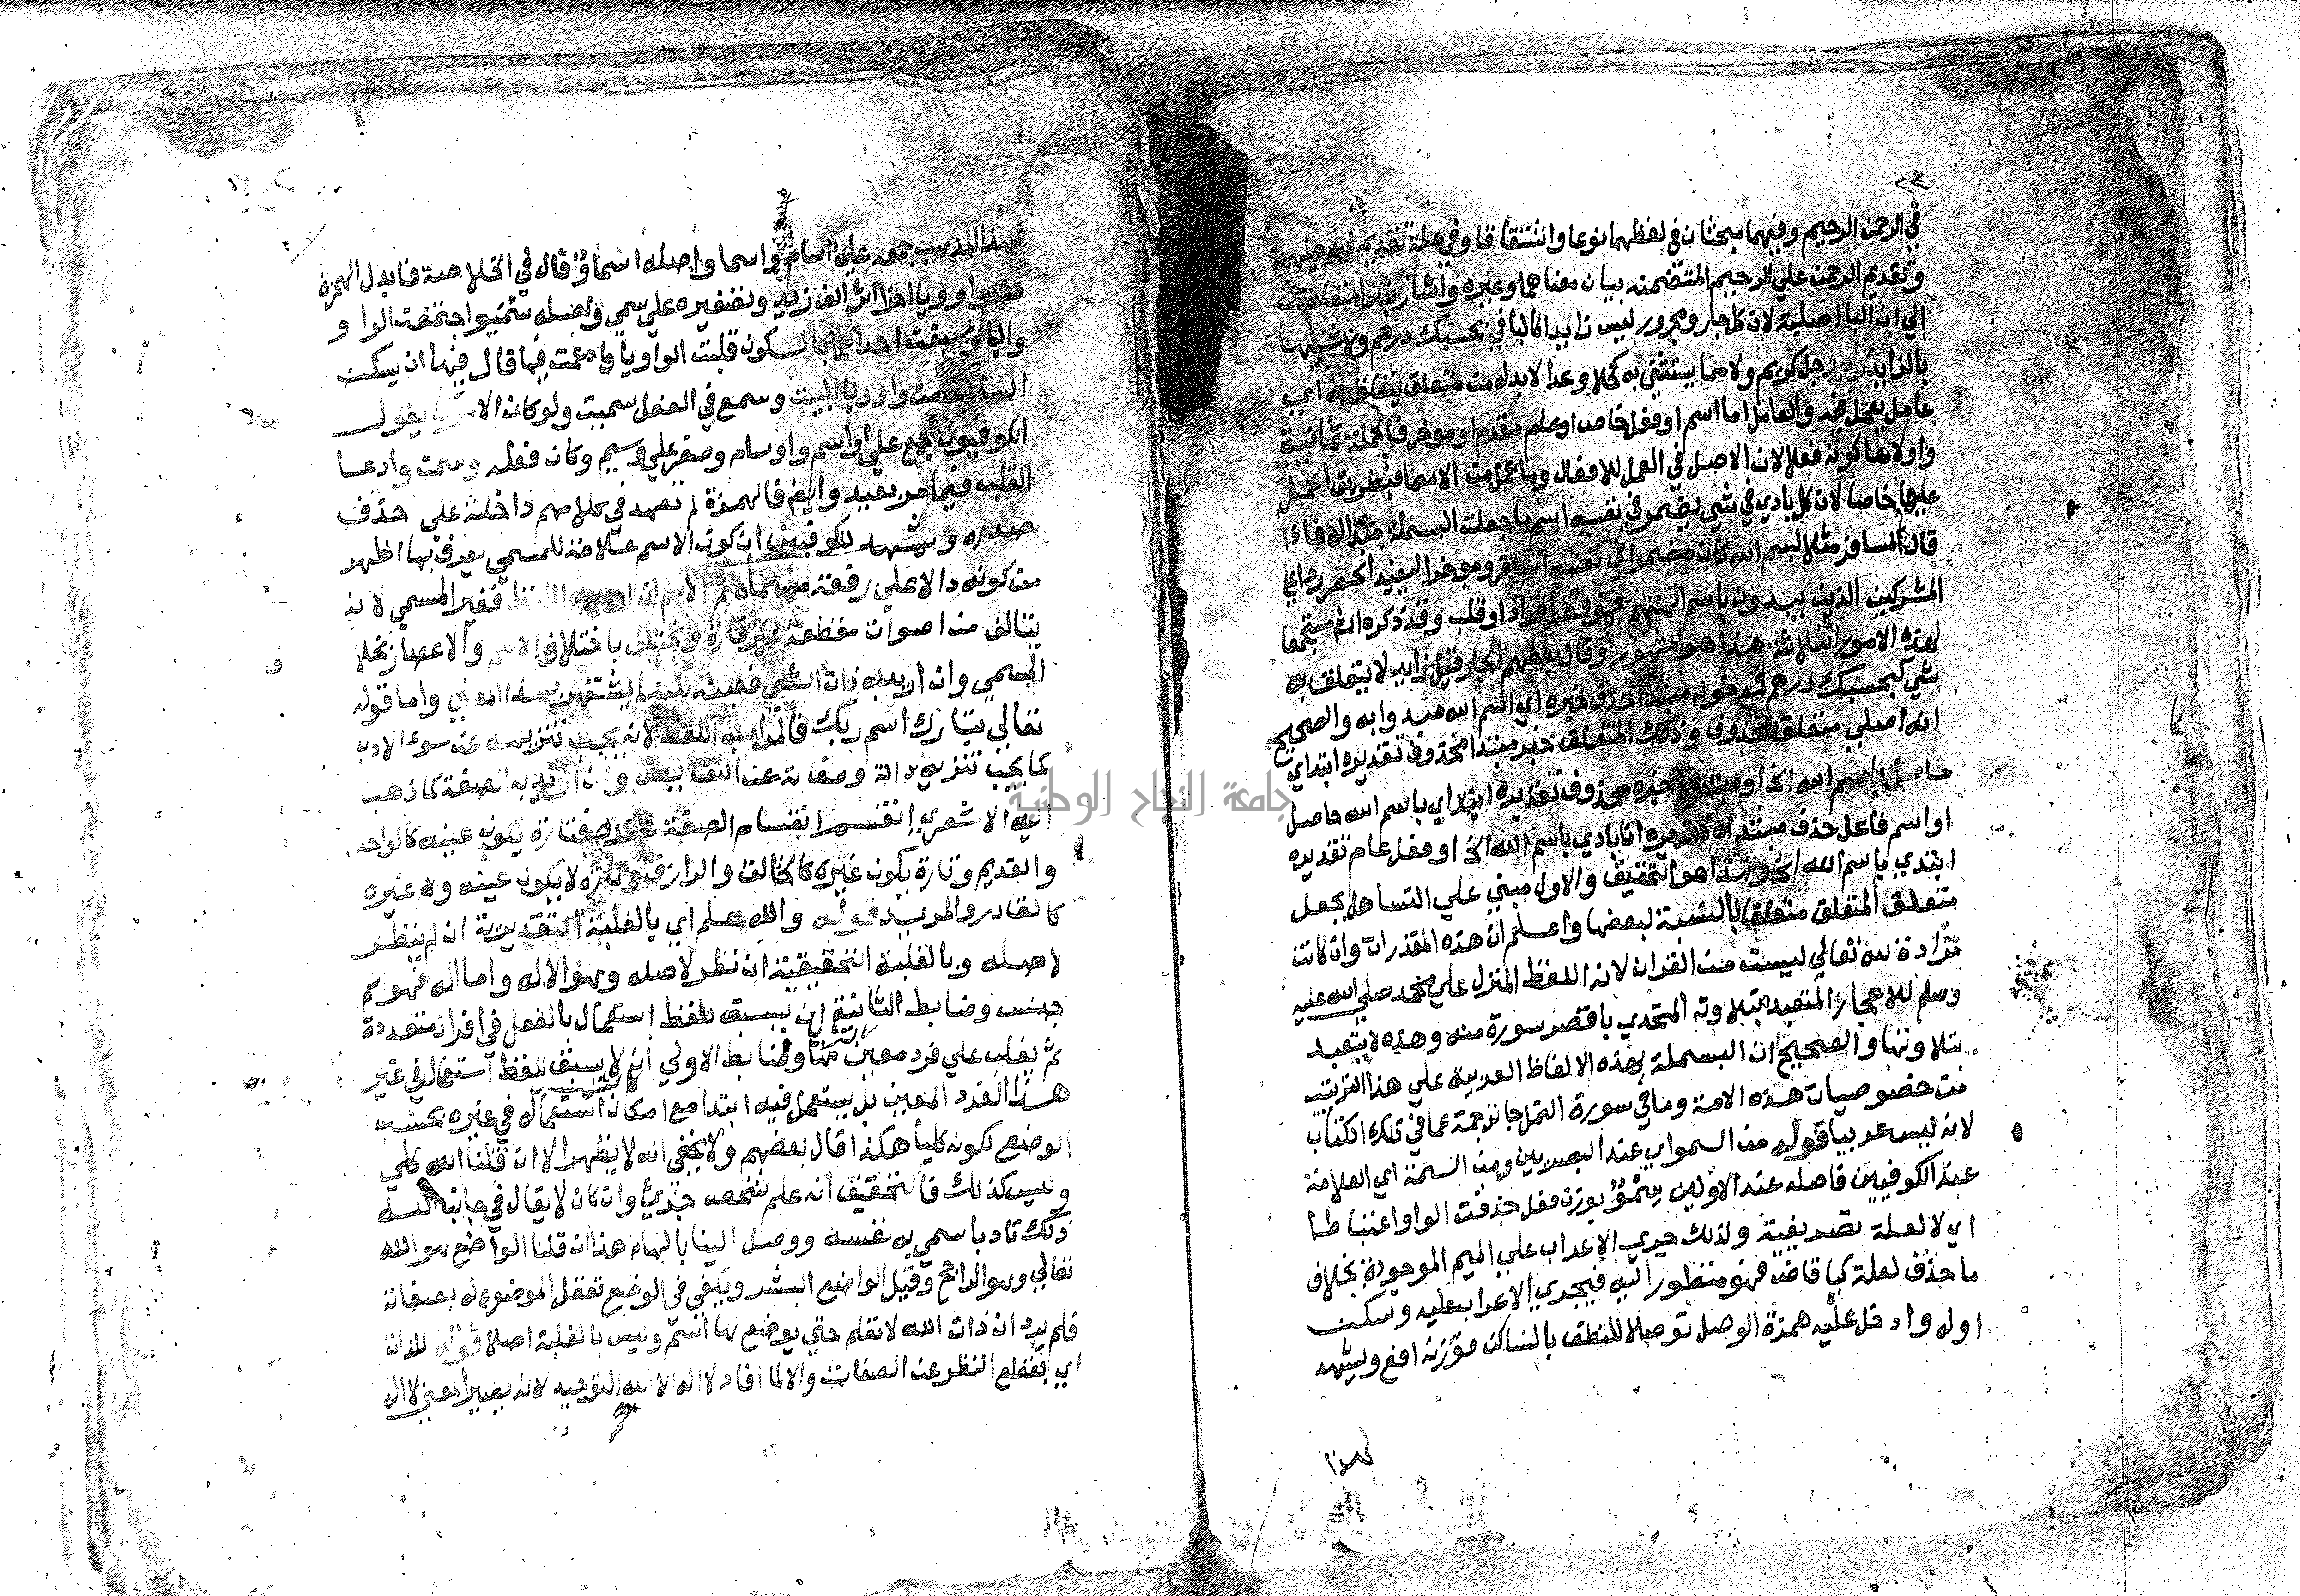 في الرحمن الرحيم وفيهما مبحثان في لفظهما نوعا واشتقاقا وفي علة تقديم الله عليهما
وتقديم الرحمن علي الرحيم المتضمنه بيان معناهما وغيره واشار بذكر المتعلق
الي ان البا اصلية لان كل جار ومجرور ليس زايدا كالبا في بحسبك درهم ولا شبيها
بالزايد رجل كريم ولا مما يستثني به كخلا وعدا لا بد له من متعلق يتعلق به اي
عامل يعمل فيه والعامل اما اسم او فعل خاص او عام مقدم او موخر فالجملة ثمانية
واولاها كونه فعلا لان الاصل في العمل للافعال وما عمل من الاسما فبطريق الحمل
عليها خاصا لان كل بادي في شي يضمر في نفسه اسم ما جعلت البسملة مبدا له فاذا
قال المسافر مثلا بسم الله كان مضمرا في نفسه اسافر وموخرا ليفيد الحصر ردا علي
المشركين الذين يبدون باسم الهتهم فهو قصر افراد او قلب وقد ذكره الش مستجمعا
لهذه الامور الثلاثة هذا هو المشهور وقال بعضهم الجار قيل زايد لا يتعلق به
شي كبحسبك درهم فمدخوله مبتدا حذف خبره اي اسم الله مبدوا به والصحيح
انه اصلي متعلق بمحذوف وذلك المتعلق خبر مبتدا محذوف تقديره ابتداي
حاصل باسم الله الخ او خبره محذوف تقديره ابتداي باسم الله حاصل
او اسم فاعل حذف مبتداه تقديره انا بادي باسم الله الخ او فعل عام تقديره
ابتدي باسم الله الخ وهذا هو التحقيق والاول مبني علي التساهل بجعل
متعلق المتعلق متعلقا بالنسبة لبعضها واعلم ان هذه المقدرات وان كانت
مرادة لله تعالي ليست من القران لانه اللفظ المنزل علي محمد صلي الله عليه
وسلم للاعجاز المتعبد بتلاوته المتحدي باقصر سورة منه وهذه لا يتعبد
بتلاوتها والصحيح ان البسملة بهذه الالفاظ العربية علي هذا الترتيب
من خصوصيات هذه الامة وما في سورة النمل جا ترجمة عما في ذلك الكتاب
لانه ليس عربيا قوله من السمو اي عند البصريين ومن السمة اي العلامة
عند الكوفيين فاصله عند الاولين سمو بوزن فعل حذفت الواو اعتباطا
اي لا لعلة تصريفية ولذلك جري الاعراب علي الميم الموجودة بخلاف
ما حذف لعلة كيا قاض فهو منظور اليه فيجري الاعراب عليه وسكن
اوله وادخل عليه همزة الوصل توصلا للنطق بالساكن فوزنه افع ويشهد
لهذا
لهذا المذهب جمعه علي اسام واسما واصله اسماو قال في الخلاصة فابدل الهمزة
من واو ويا اخرا اثر الف زيد وتصغيره علي سمي واصله سميو اجتمعت الواو و
واليا وسبقت احداهما بالسكون قلبت الواو يا وادغمت فيها قال فيها ان يسكن
السابق من واو ويا البيت وسمع في الفعل سميت ولو كان الامر يقول
الكوفيون لجمع علي اواسم واوسام وصغر علي وسيم وكان فعله وسمت وادعا
القلب فيما مر بعيد وايض فالهمزة لم تعهد في كلامهم داخلة علي حذف
صدره ويشهد للكوفيين ان كون الاسم علامة للمسمي يعرف بها اظهر
من كونه دالا علي رفعة مسماه ثم الاسم ان اريد به اللفظ فغير المسمي لانه
يتالف من اصوات مقطعة غير قارة ويختلف باختلاف الامم والاعصار بخلا
المسمي وان اريد به ذات الشي فعينه لكنه لم يشتهر بهذا المعني واما قوله
تعالي تبارك اسم ربك فالمراد به اللفظ لانه يجب تنزيهه عن سوء الادب
كما يجب تنزيه ذاته وصفاته عن النقايص وان اريد به الصفة كما ذهب
اليه الاشعري انقسم انقسام الصفة عنده فتارة يكون عينه كالواحد
والقديم وتارة يكون غيره كالخالق والرازق وتارة لا يكون عينه ولا غيره
كالقادر والمريد قوله والله علم اي بالغلبة التقديرية ان لم ينظر
لاصله وبالغلبة التحقيقية ان نظر لاصله وهو الاله واما اله فهو اسم
جنس وضابط الثانية ان يسبق للفظ استعمال بالفعل في افراد متعددة
ثم يغلب علي فرد معين منها وضابط الاولي ان لا يسبق للفظ استعمال في غير
هذا الفرد المعين بل يستعمل فيه ابتدا مع امكان استعماله في غيره بحسب
الوضع لكونه كليا هكذا قال بعضهم ولا يخفي انه لا يظهر الا ان قلنا انه كلي
وليس كذلك فالتحقيق انه علم شخص جزئي وان كان لا يقال في جانب الله
ذلك تادبا سمي به نفسه ووصل الينا بالهام هذا ان قلنا الواضع هو الله
تعالي وهو الراجح وقيل الواضع البشر ويكفي في الوضع تعقل الموضوع له بصفاته
فلم يرد ان ذات الله لا تعلم حتي يوضع لها اسم وليس بالغلبة اصلا قوله للذات
اي بقطع النظر عن الصفات والا لما افاد لا اله الا الله التوحيد لانه يصير المعني لا اله
جامعة النجاح الوطنية